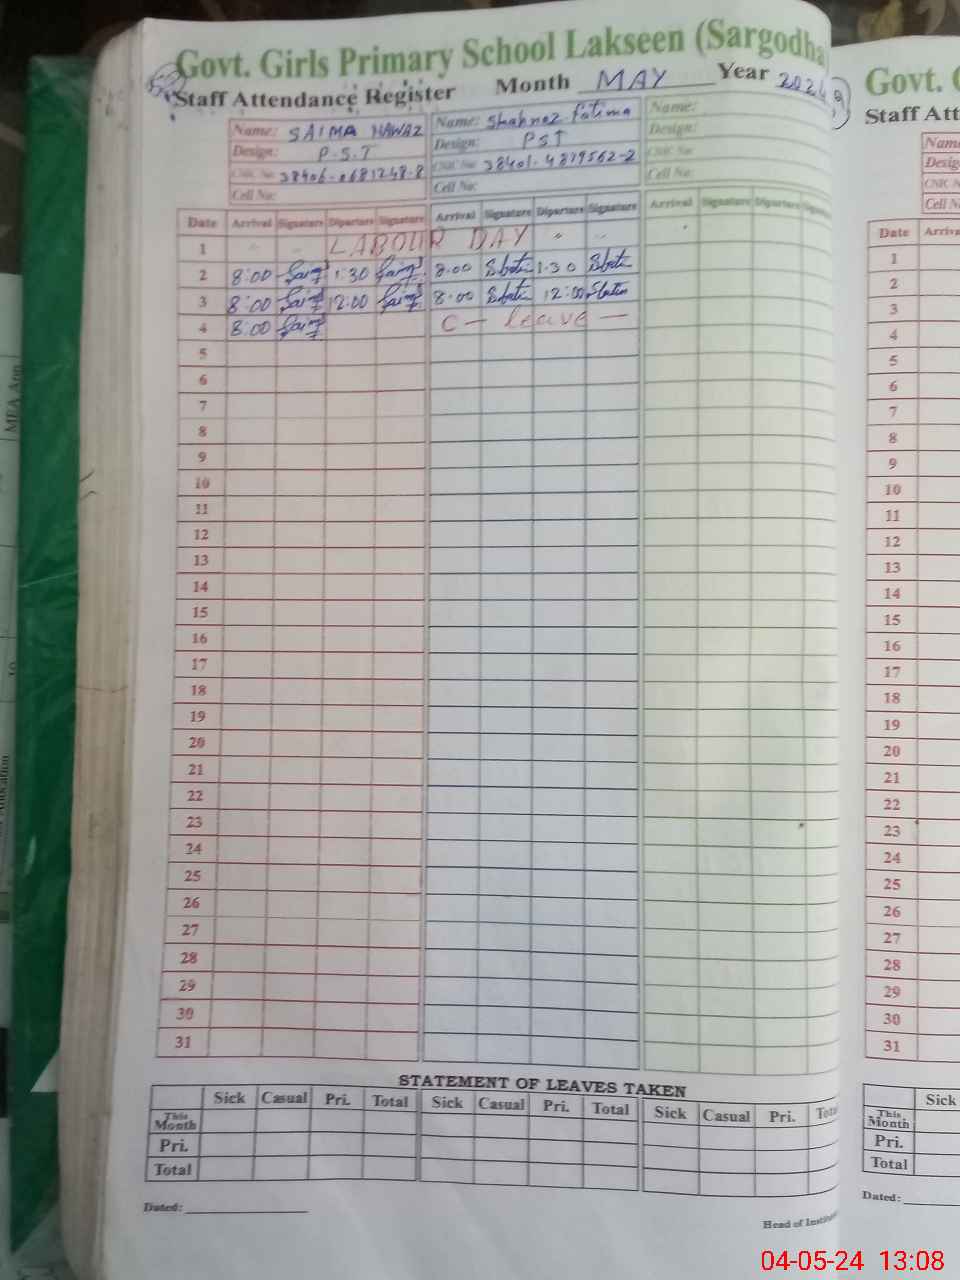 Govt. Girls Primary School Lakseen (Sargodha
Staff Attendance Register Month MAY Year 2024
Name: SAIMA NAWAZ Name: Shahnaz Fatima Name:
Design: P.S.T Design: PST Design:
CNIC No: 38406-0681248-8 CNIC No: 38401-4879562-2 CNIC No:
Cell No: Cell No: Cell No:
Date Arrival Signature Diparture Signature Arrival Signature Diparture Signature Arrival Signature Diparture
1 " " LABOUR DAY " "
2 8:00 1:30 8:00 1:30
3 8:00 12:00 8:00 12:00
4 8:00 C - leave -
5
6
7
8
9
10
11
12
13
14
15
16
17
18
19
20
21
22
23
24
25
26
27
28
29
30
31
STATEMENT OF LEAVES TAKEN
Sick Casual Pri. Total Sick Casual Pri. Total Sick Casual Pri. Total
This Month
Pri.
Total
Dated:
Head of Instit
Govt. G
Staff Att
Name
Desig
CNIC N
Cell N
Date Arriva
1
2
3
4
5
6
7
8
9
10
11
12
13
14
15
16
17
18
19
20
21
22
23
24
25
26
27
28
29
30
31
Sick
This Month
Pri.
Total
Dated:
04-05-24 13:08